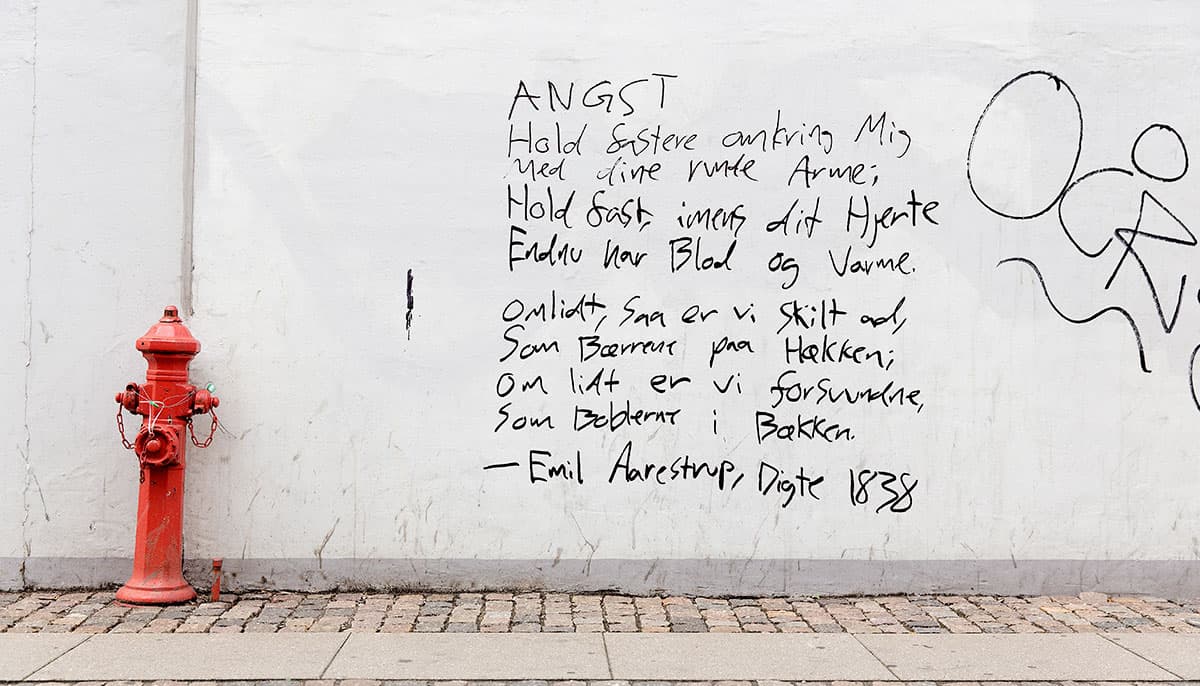 ANGST
Hold fastere omkring Mig
Med dine runde Arme;
Hold fast, imens dit Hjerte
Endnu har Blod og Varme.
Omlidt, saa er vi skilt ad,
Som Bærrene paa Hækken;
Om lidt er vi forsvundne,
Som Boblerne i Bækken.
— Emil Aarestrup, Digte 1838